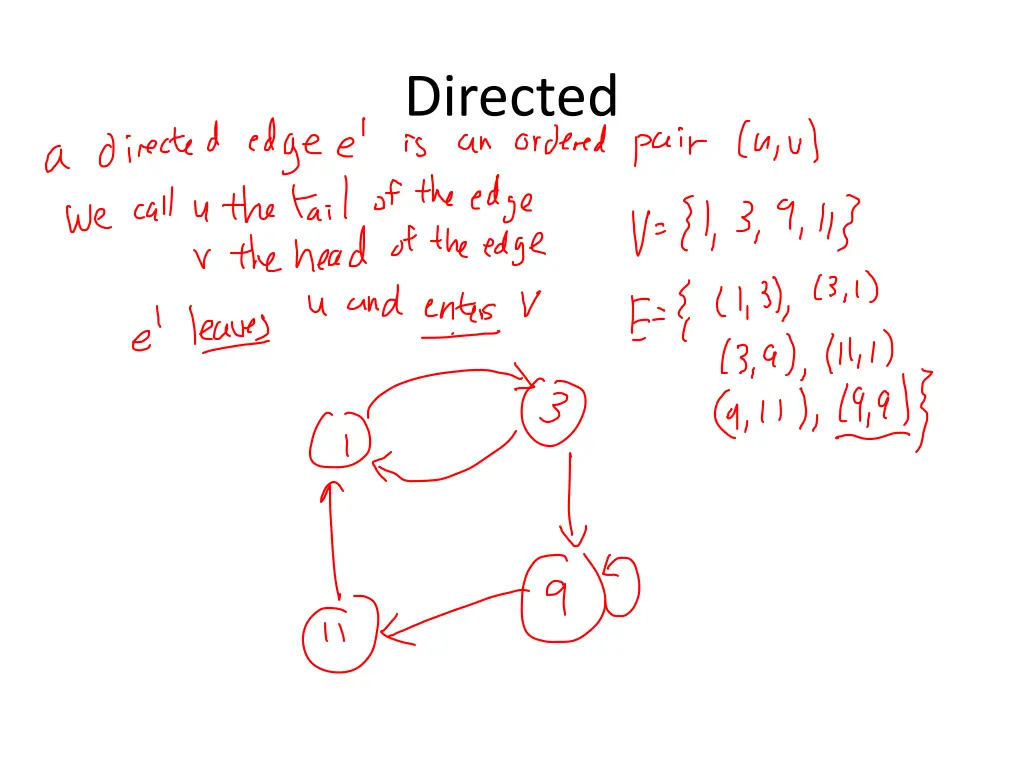 Directed
a directed edge e' is an ordered pair (u,v)
We call u the tail of the edge
v the head of the edge
e' leaves u and enters v
V={1, 3, 9, 11}
E={ (1,3), (3,1)
(3,9), (11,1)
(9,11), (9,9)}
1
3
9
11